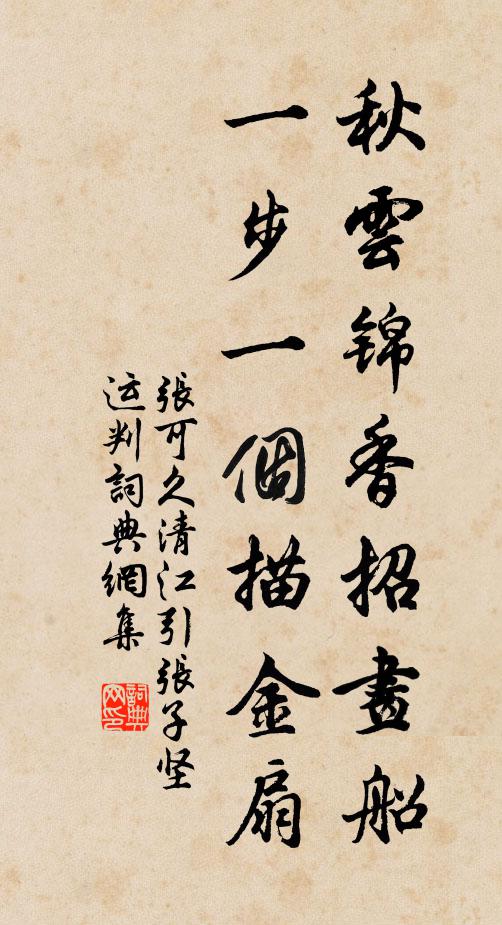 秋雲锦香招畫船
一步一個描金扇
張可久清江引張子坚
运判詞典網集
詞典
网印